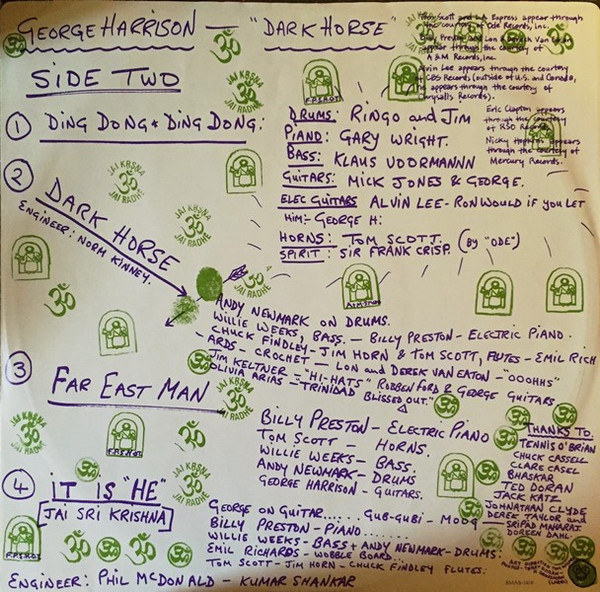 GEORGE HARRISON - "DARK HORSE"
Tom Scott and L.A. Express appear through
the courtesy of Ode Records, Inc.
Billy Preston and Lon & Derek Van Eaton
appear through the courtesy of
A & M Records, Inc.
Alvin Lee appears through the courtesy
of CBS Records (outside of U.S. and Canada,
he appears through the courtesy of
Chrysalis Records).
Eric Clapton appears
through the courtesy
of RSO Records
Nicky Hopkins appears
through the courtesy of
Mercury Records.
SIDE TWO
① DING DONG * DING DONG:
DRUMS: RINGO and JIM
PIANO: GARY WRIGHT.
BASS: KLAUS VOORMANNN
GUITARS: MICK JONES & GEORGE.
ELEC GUITARS ALVIN LEE - RON WOULD IF YOU LET
HIM:- GEORGE H:
HORNS: TOM SCOTT. (BY "ODE")
SPIRIT: SIR FRANK CRISP.
② DARK HORSE
ENGINEER: NORM KINNEY.
ANDY NEWMARK ON DRUMS.
WILLIE WEEKS, BASS. - BILLY PRESTON - ELECTRIC PIANO.
CHUCK FINDLEY - JIM HORN & TOM SCOTT, FLUTES - EMIL RICH
-ARDS - CROCHET - LON and DEREK VAN EATON - "OOOHHS"
JIM KELTNER - "HI-HATS" ROBBEN FORD & GEORGE GUITARS
OLIVIA ARIAS - "TRINIDAD BLISSED OUT."
③ FAR EAST MAN
BILLY PRESTON - ELECTRIC PIANO
TOM SCOTT - HORNS.
WILLIE WEEKS - BASS.
ANDY NEWMARK - DRUMS
GEORGE HARRISON - GUITARS.
THANKS TO.
TENNIS O'BRIAN
CHUCK CASSELL
CLARE CASEL
BHASKAR
TED DORAN
JACK KATZ
JOHNATHAN CLYDE
DEREK TAYLOR and
SRIPAD MAHARAJ
DOREEN DAHL.
④ IT IS "HE"
JAI SRI KRISHNA
GEORGE ON GUITAR...... GUB-GUBI - MOOG
BILLY PRESTON - PIANO.......
WILLIE WEEKS - BASS + ANDY NEWMARK - DRUMS:
EMIL RICHARDS - WOBBLE BOARD
TOM SCOTT - JIM HORN - CHUCK FINDLEY FLUTES:
ENGINEER: PHIL McDONALD - KUMAR SHANKAR
JAI KRSNA
ॐ
JAI RADHE
F.P.S.H.O.T.